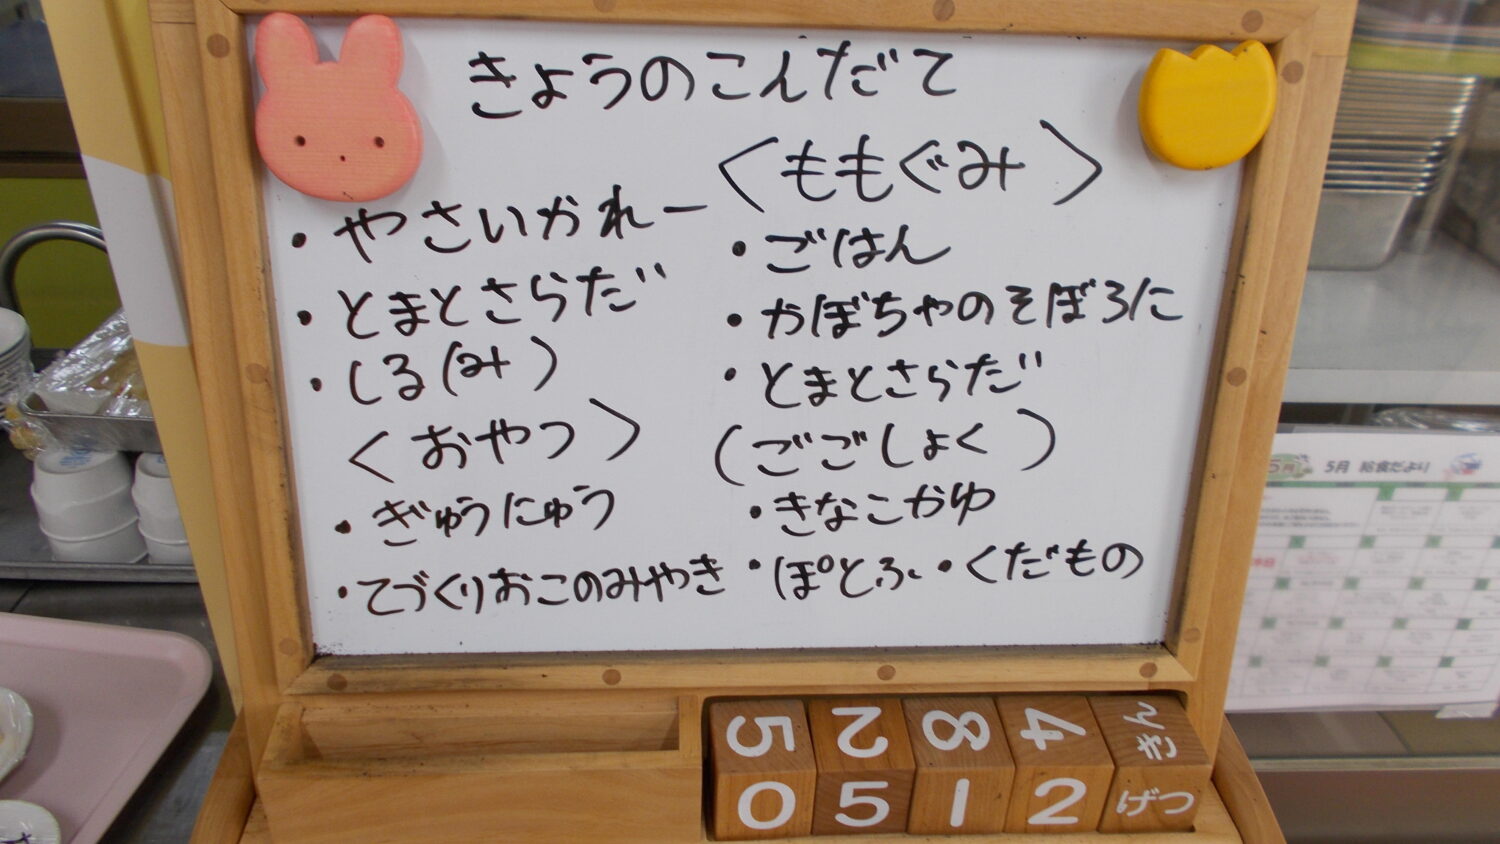 きょうのこんだて
・やさいかれー
・とまとさらだ
・しる(み)
<おやつ>
・ぎゅうにゅう
・てづくりおこのみやき
<ももぐみ>
・ごはん
・かぼちゃのそぼろに
・とまとさらだ
(ごごしょく)
・きなこかゆ
・ぽとふ・くだもの
5 2 8 4 きん
0 5 1 2 げつ
5月 給食だより